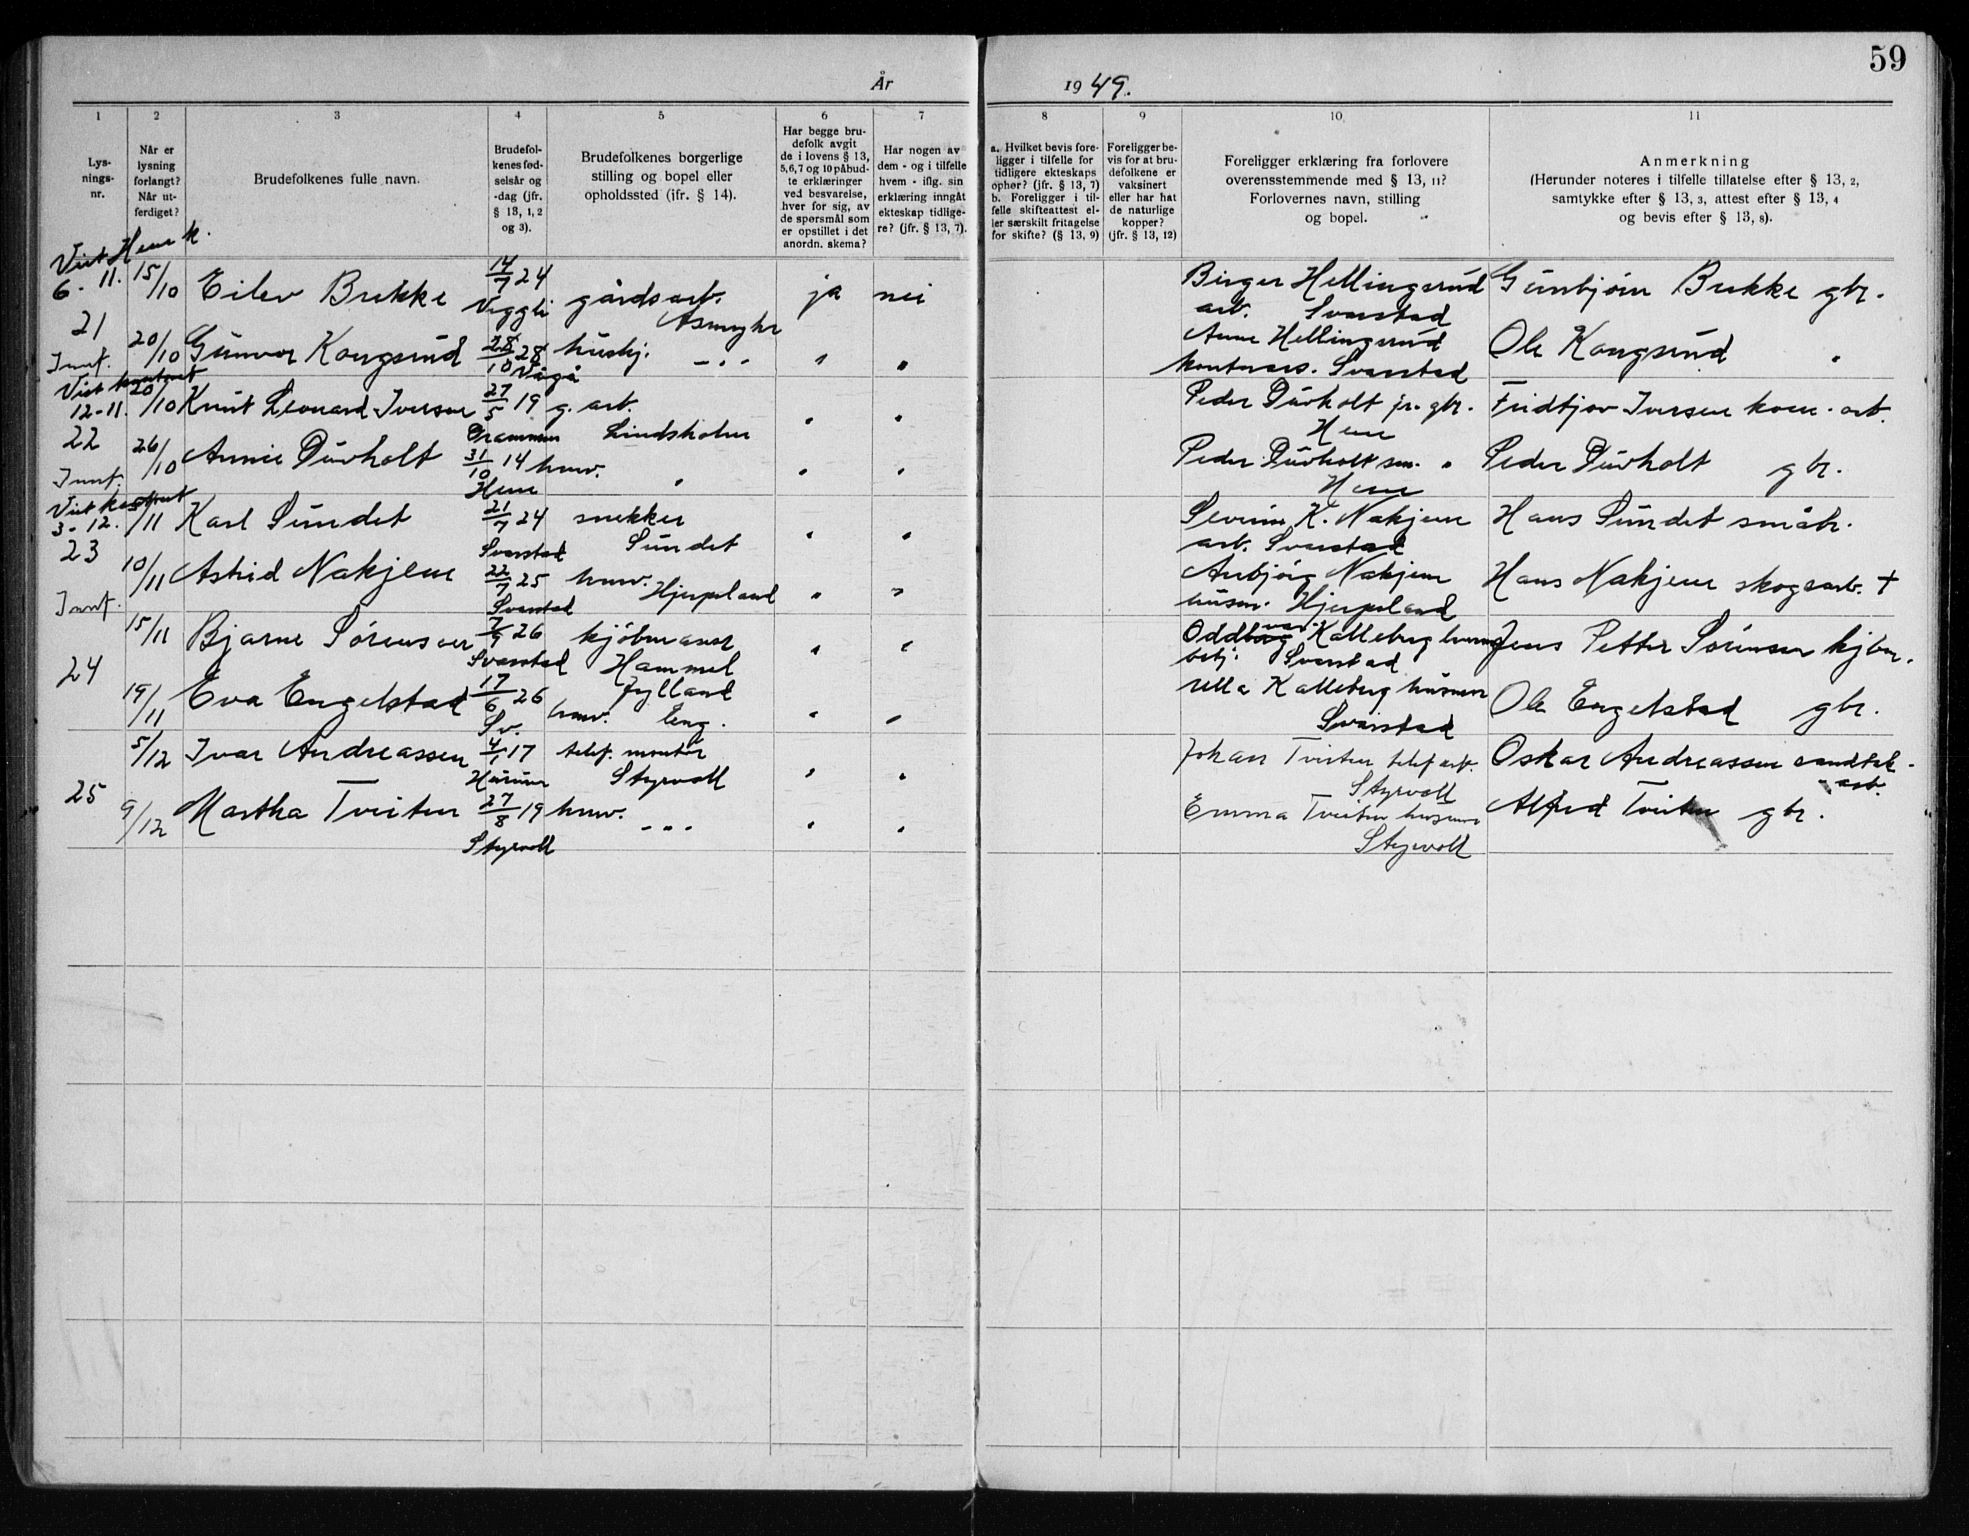 59
År 1949.
1 2 3 4 5 6 7 8 9 10 11
Lys-
nings-
nr.
Når er
lysning
forlangt?
Når ut-
ferdiget?
Brudefolkenes fulle navn.
Brudefol-
kenes fød-
selsår og
-dag (jfr.
§ 13, 1, 2
og 3).
Brudefolkenes borgerlige
stilling og bopel eller
opholdssted (jfr. § 14).
Har begge bru-
defolk avgit
de i lovens § 13,
5,6,7 og 10 påbud-
te erklæringer
ved besvarelse,
hver for sig, av
de spørsmål som
er opstillet i det
anordn. skema?
Har nogen av
dem - og i tilfelle
hvem - iflg. sin
erklæring inngått
ekteskap tidlige-
re? (jfr. § 13, 7).
a. Hvilket bevis fore-
ligger i tilfelle for
tidligere ekteskaps
ophør? (jfr. § 13, 7)
b. Foreligger i til-
felle skifteattest el-
ler særskilt fritagelse
for skifte? (§ 13, 9)
Foreligger be-
vis for at bru-
defolkene er
vaksinert
eller har hat
de naturlige
kopper?
(jfr. § 13, 12)
Foreligger erklæring fra forlovere
overensstemmende med § 13, 11?
Forlovernes navn, stilling
og bopel.
Anmerkning
(Herunder noteres i tilfelle tillatelse efter § 13, 2,
samtykke efter § 13, 3, attest efter § 13, 4
og bevis efter § 13, 8).
Viet Hem k.
6-11. 15/10 Eilev Brekke 14/7 24 gårdsarb. ja nei Birger Hellingsrud Gunbjörn Brekke gbr.
Veggli arb. Svarstad
21 20/10 Gunvor Kongsrud 28/10 28 hushj. -"- " " Anne Hellingsrud Ole Kongsrud "
Innf. Vågå Svarstad
12-11. 20/10 Knut Leonard Iversen 27/5 19 g. arb. " " Peder Duvholt jr. gbr. Fridtjov Iversen kom. arb.
Drammen Lindsholm Hem
22 26/10 Annie Duvholt 31/10 14 hmv. " " " Peder Duvholt sen. " Peder Duvholt gbr.
Innf. Hem Hem
3-12. /11 Karl Sundet 21/7 24 snekker " " Severin K. Nakjem Hans Sundet småbr.
Svarstad Sundet arb. Svarstad
23 10/11 Astrid Nakjem 22/7 25 hmv. Hjerpeland " " Anbjørg Nakjem Hans Nakjem skogsarb. +
Innf. Svarstad husm. Hjerpeland
15/11 Bjarne Sörensen 7/9 26 kjöbmann " " Oddvar Kalleberg Jens Petter Sörensen kjbm.
Svarstad Hammel betj. Svarstad
Jylland
24 19/11 Eva Engelstad 17/6 26 hmv. Eng. " " Kalleberg husmor Ole Engelstad gbr.
Sv. Svarstad
5/12 Ivar Andreassen 4/1 17 telef. montör " " Johan Tveiten telef arb. Oskar Andreassen sandtak.
Hurum Styrvoll Styrvoll arb.
25 9/12 Martha Tveiten 27/8 19 hmv. -"- " " Emma Tveiten husmor Alfred Tveiten gbr.
Styrvoll Styrvoll